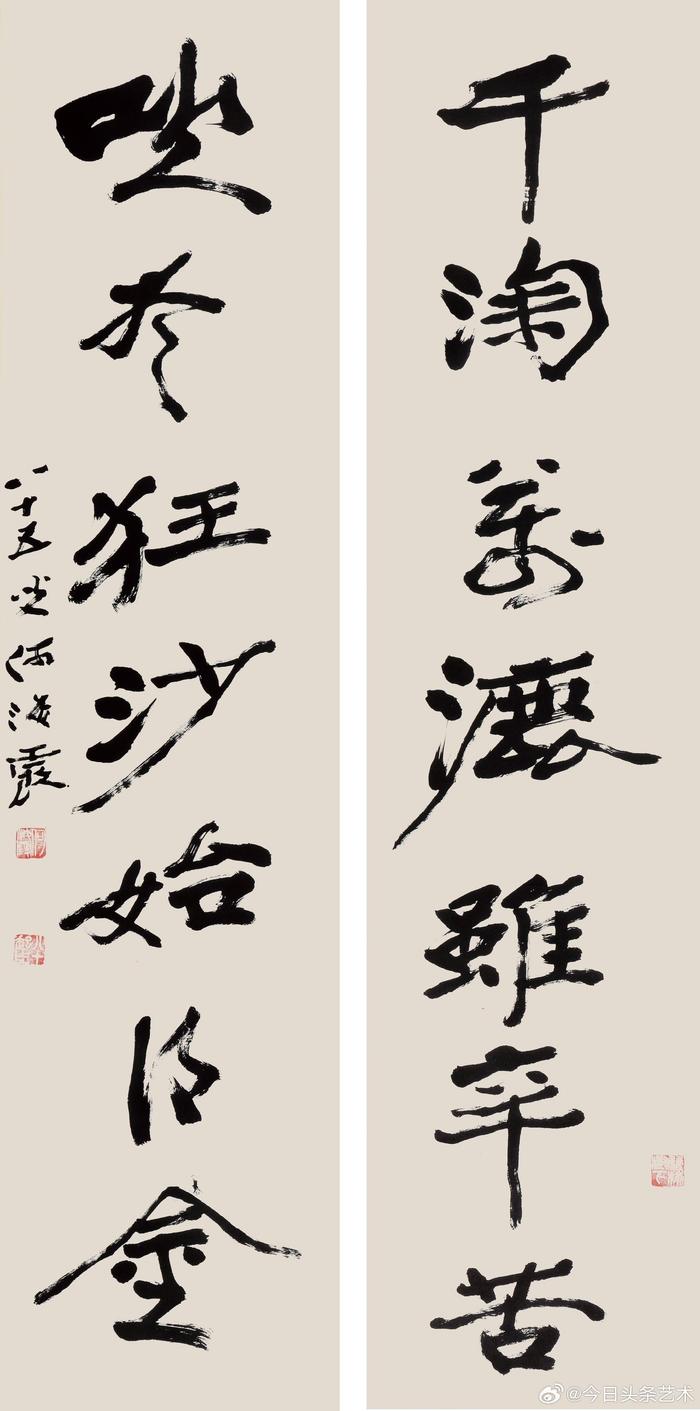 千淘萬漉雖辛苦
吹尽狂沙始得金
八十五叟何海霞
@今日头条艺术